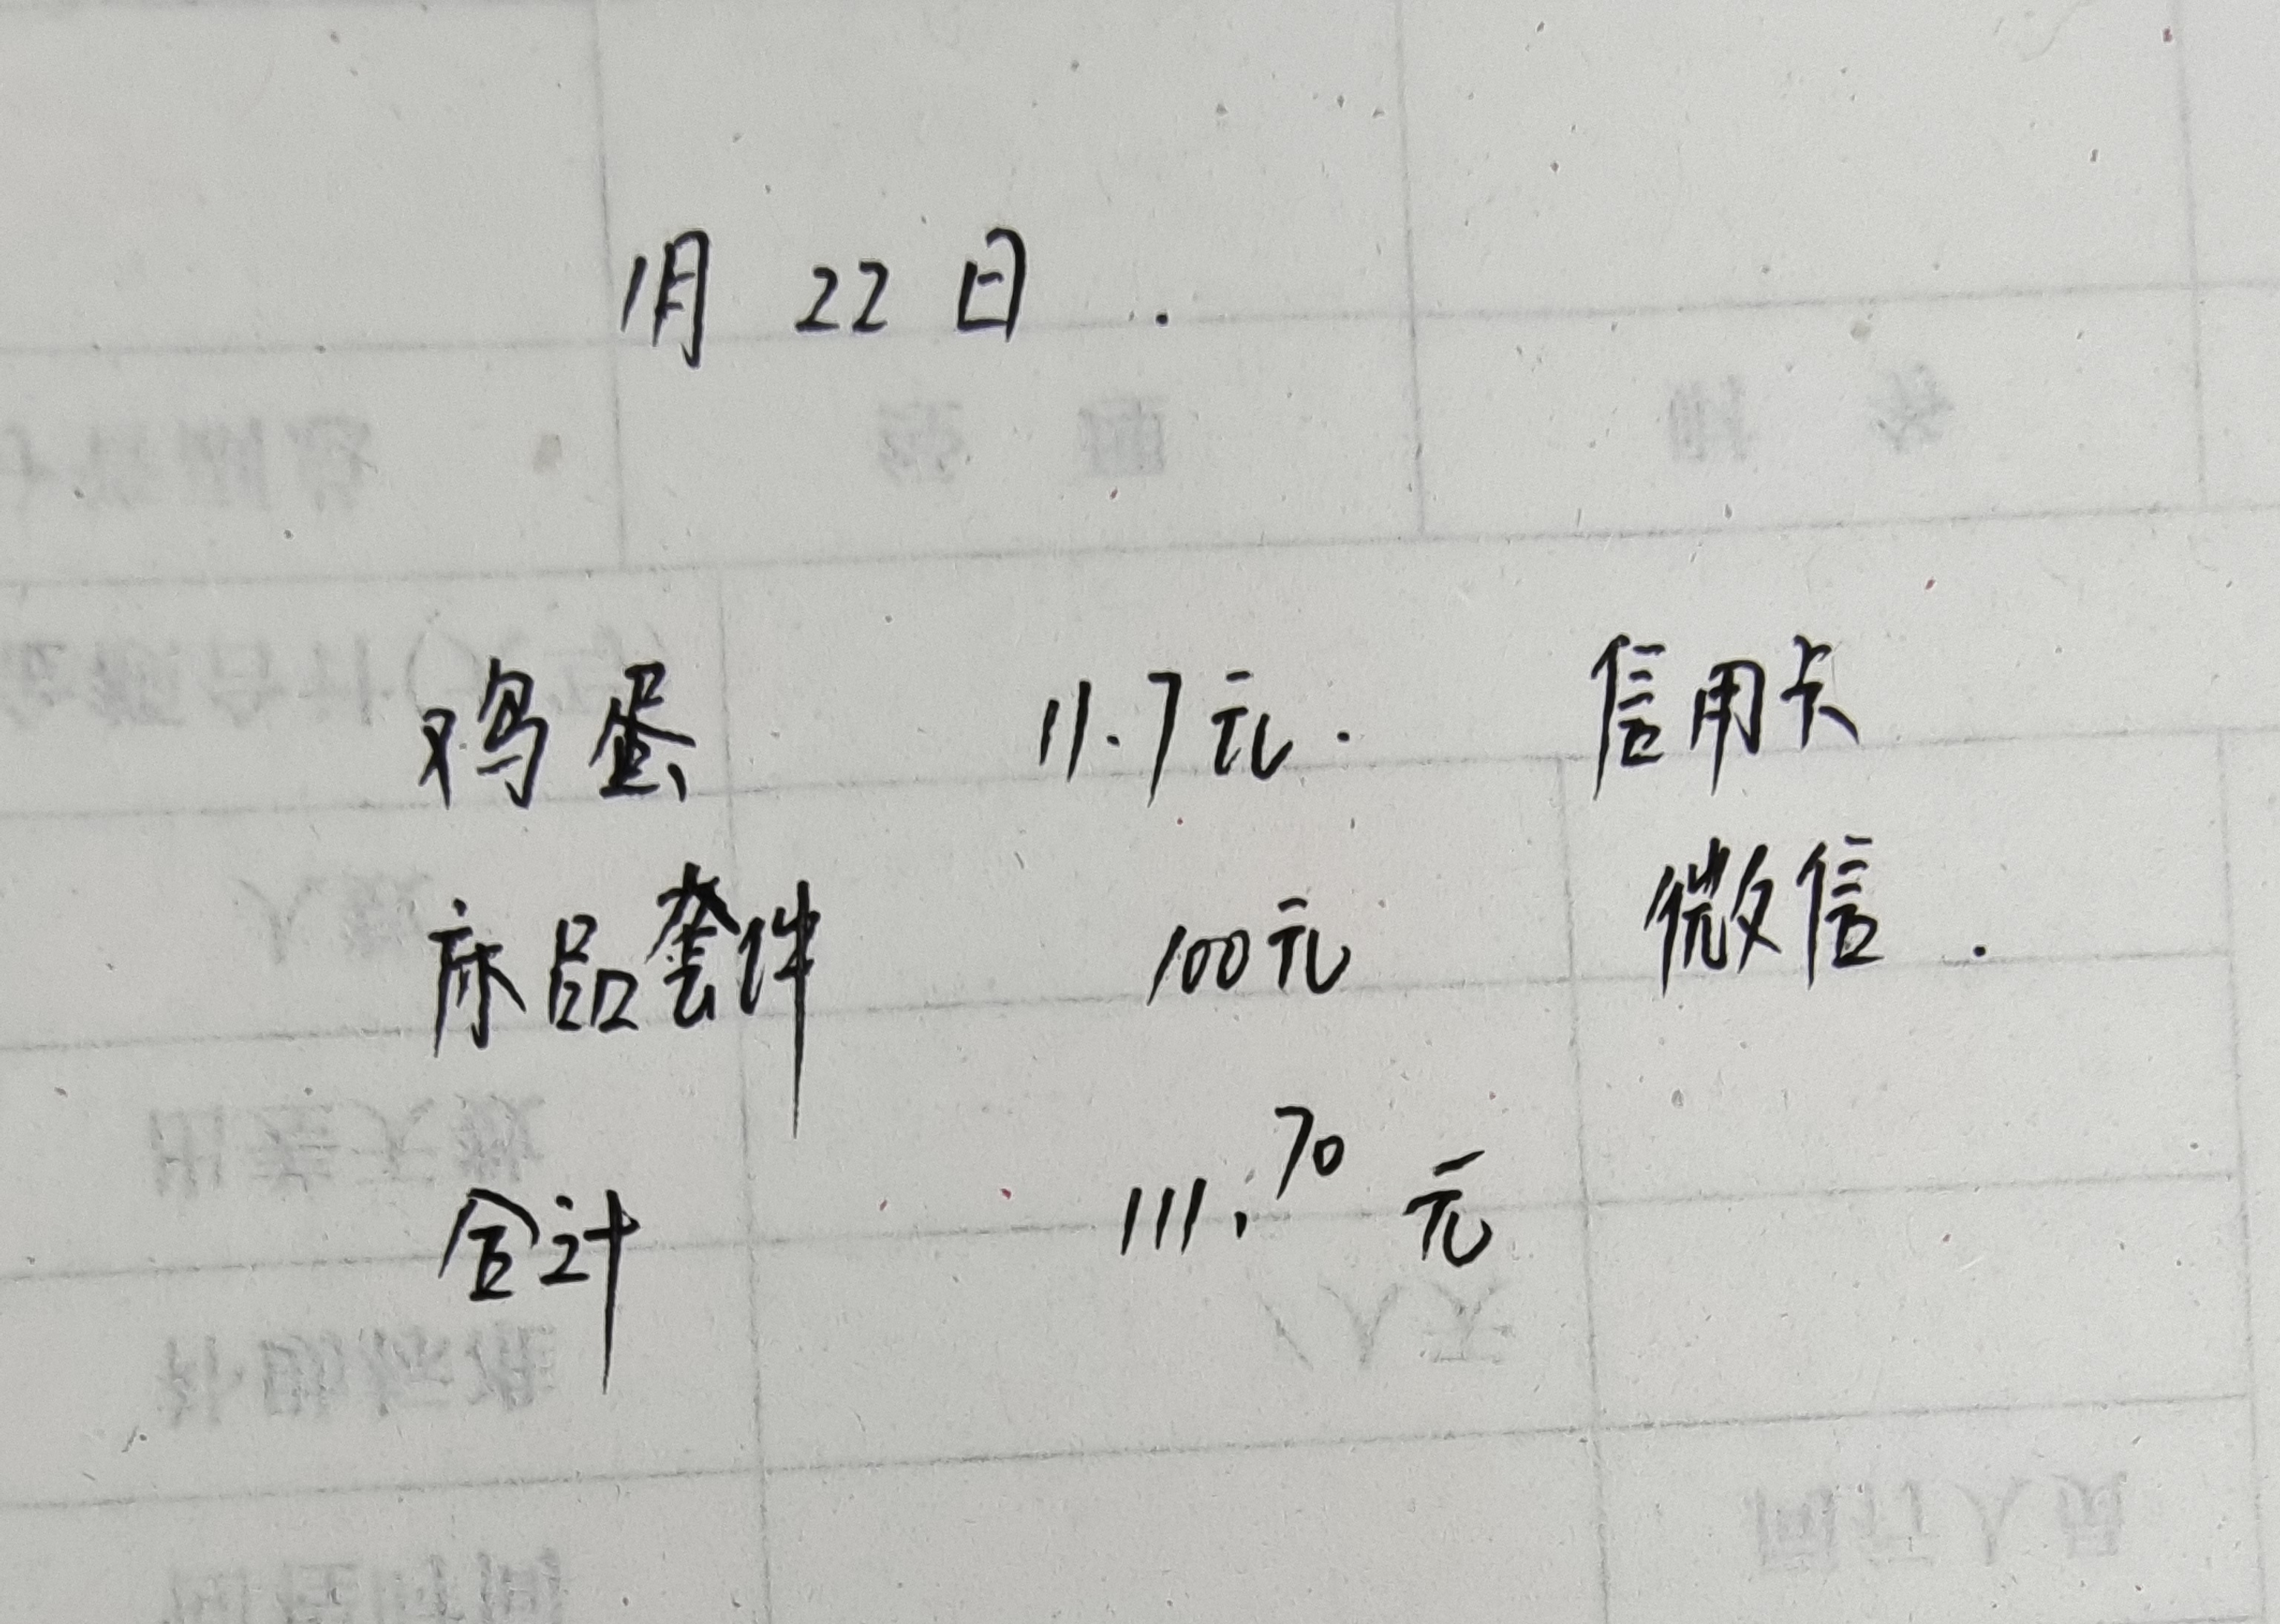 1月 22 日.
鸡蛋 11.7元. 信用卡
床品套件 100元 微信.
合计 111.70 元